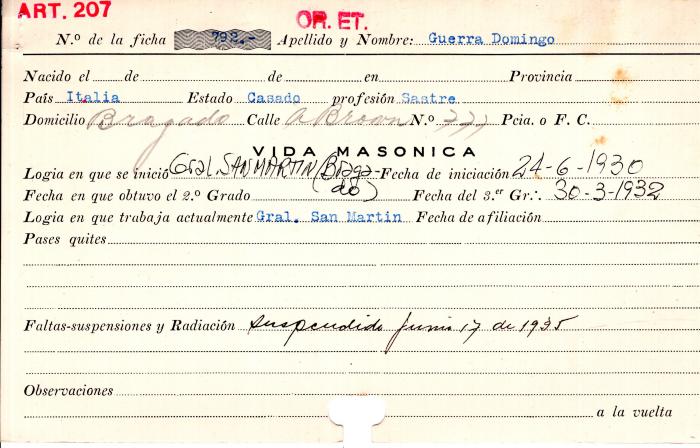 ART. 207
OR. ET.
N.º de la ficha 792.- Apellido y Nombre: Guerra Domingo
Nacido el de de en Provincia
País Italia Estado Casado profesión Sastre
Domicilio Bragado Calle A Broon N.º 777 Pcia. o F. C.
VIDA MASONICA
Logia en que se inició Gral. SAN MARTIN (Braga- Fecha de iniciación 24-6-1930
do)
Fecha en que obtuvo el 2.º Grado Fecha del 3.er Gr∴. 30-3-1932
Logia en que trabaja actualmente Gral. San Martin Fecha de afiliación
Pases quites
Faltas-suspensiones y Radiación suspendido junio 17 de 1935
Observaciones
a la vuelta